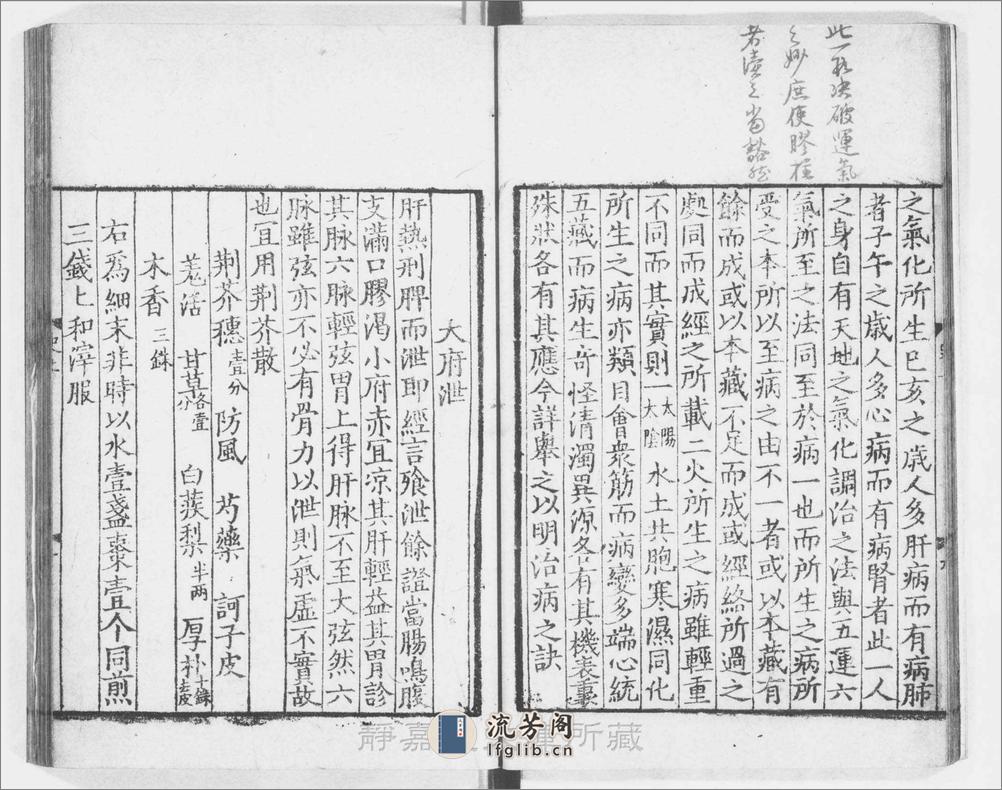 此一段決破運氣
之妙庶使膠柱
者讀之當豁然
之氣化所生巳亥之歲人多肝病而有病肺
者子午之歲人多心病而有病腎者此一人
之身自有天地之氣化調治之法與五運六
氣所至之法同至於病一也而所生之病所
受之本所以至病之由不一者或以本藏有
餘而成或以本藏不足而成或經絡所過之
劇同而成經之所載二火所生之病雖輕重
不同而其實則一太陽太陰水土共胞寒濕同化
所生之病亦類目會衆筋而病變多端心統
五藏而病生奇怪清濁異源各有其機表裏
殊狀各有其應今詳舉之以明治病之訣
大府泄
肝熱刑脾而泄即經言飱泄餘證當腸鳴腹
支滿口膠渴小府赤宜凉其肝輕益其胃診
其脉六脉輕弦胃上得肝脉不至大弦然六
脉雖弦亦不必有骨力以泄則氣虛不實故
也宜用荆芥散
荆芥穗壹分 防風 芍藥 訶子皮
羗活 甘草各壹分 白蒺梨半兩 厚朴十銖去皮
木香三銖
右爲細末非時以水壹盞棗壹个同煎
三錢匕和滓服
靜嘉堂文庫所藏
流芳阁
lfglib.cn